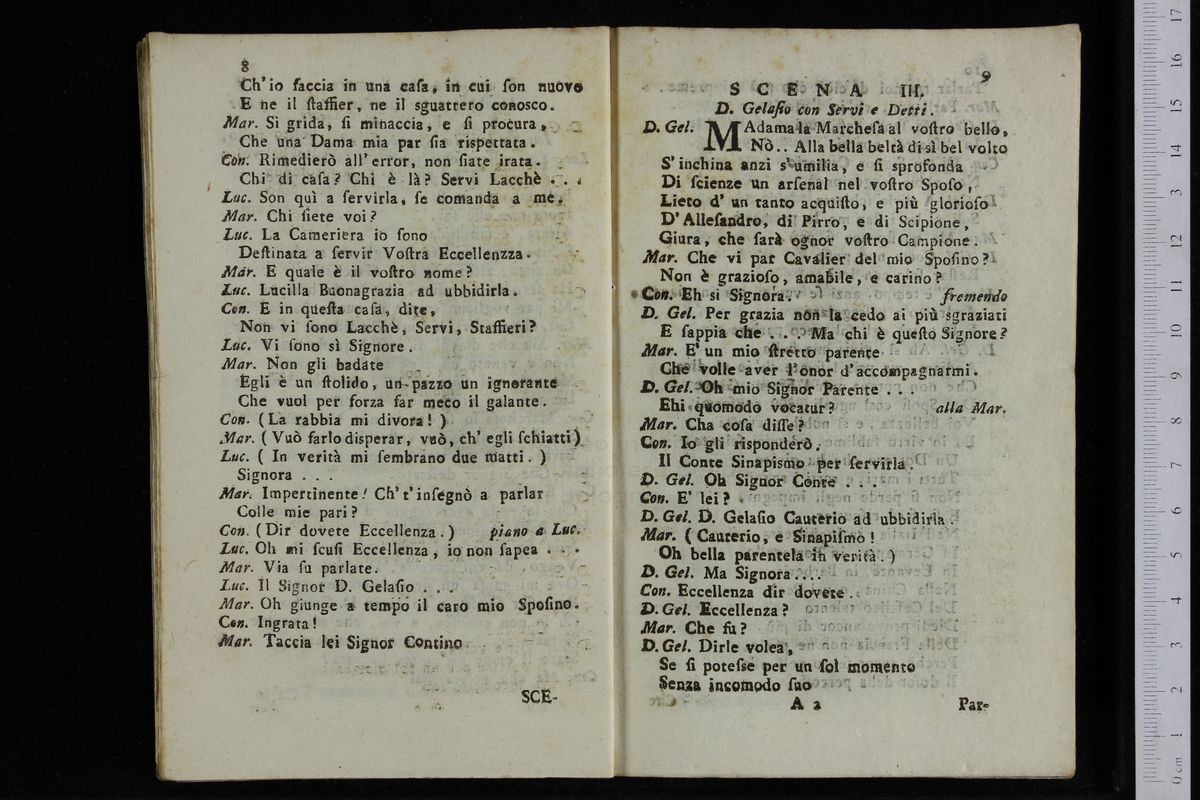 8
Ch'io faccia in una caſa, in cui ſon nuovo
E ne il ſtaffier, ne il sguattero conosco.
Mar. Si grida, ſi minaccia, e ſi procura,
Che una Dama mia par ſia rispettata.
Con. Rimedierò all'error, non ſiate irata.
Chi di caſa? Chi è là? Servi Lacchè . . .
Luc. Son quì a ſervirla, ſe comanda a me.
Mar. Chi ſiete voi?
Luc. La Cameriera io ſono
Deſtinata a ſervir Voſtra Eccellenzza.
Mar. E quale è il voſtro nome?
Luc. Lucilla Buonagrazia ad ubbidirla.
Con. E in queſta caſa, dite,
Non vi ſono Lacchè, Servi, Staffieri?
Luc. Vi ſono sì Signore.
Mar. Non gli badate
Egli è un ſtolido, un pazzo un ignorante
Che vuol per forza far meco il galante.
Con. (La rabbia mi divora!)
Mar. (Vuò farlo disperar, vuò, ch'egli ſchiatti)
Luc. ( In verità mi ſembrano due matti. )
Signora . . .
Mar. Impertinente! Ch't'inſegnò a parlar
Colle mie pari?
Con. (Dir dovete Eccellenza.) piano a Luc.
Luc. Oh mi ſcuſi Eccellenza, io non ſapea . . .
Mar. Via ſu parlate.
Luc. Il Signor D. Gelaſio . . .
Mar. Oh giunge a tempo il caro mio Spoſino.
Con. Ingrata!
Mar. Taccia lei Signor Contino
SCE-
9
SCENA III.
D. Gelaſio con Servi e Detti.
D. Gel. MAdama la Marcheſa al voſtro bello,
Nò.. Alla bella beltà di sì bel volto
S'inchina anzi s'umilia, e ſi sprofonda
Di ſcienze un arſenal nel voſtro Spoſo,
Lieto d'un tanto acquiſto, e più glorioſo
D'Alleſandro, di Pirro, e di Scipione,
Giura, che ſarà ognor voſtro Campione.
Mar. Che vi par Cavalier del mio Spoſino?
Non è grazioſo, amabile, e carino?
Con. Eh si Signora. fremendo
D. Gel. Per grazia non la cedo ai più sgraziati
E ſappia che . . . Ma chi è queſto Signore?
Mar. E' un mio ſtretto parente
Che volle aver l'onor d'accompagnarmi.
D. Gel. Oh mio Signor Parente . . .
Ehi quomodo vocatur? alla Mar.
Mar. Cha coſa diſſe?
Con. Io gli risponderò.
Il Conte Sinapismo per ſervirla.
D. Gel. Oh Signor Conte . . .
Con. E' lei?
D. Gel. D. Gelaſio Cauterio ad ubbidirla.
Mar. ( Cauterio, e Sinapiſmo!
Oh bella parentela in verità.)
D. Gel. Ma Signora....
Con. Eccellenza dir dovete.
D. Gel. Eccellenza?
Mar. Che fù?
D. Gel. Dirle volea,
Se ſi poteſse per un ſol momento
Senza incomodo ſuo
A 2 Par-
17
16
15
14
13
12
11
10
9
8
7
6
5
4
3
2
1
0 cm